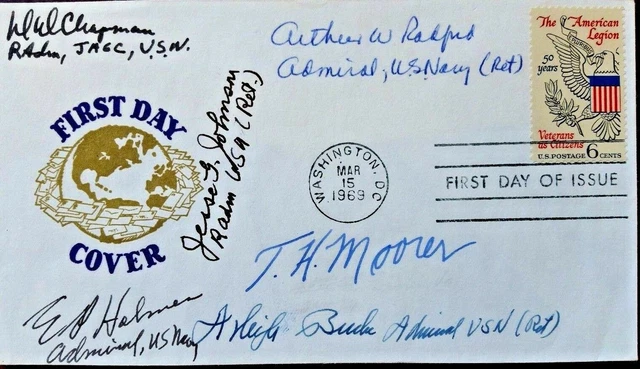 D D Chapman
RAdm, JAGC, U.S.N.
Arthur W Radford
Admiral, U.S. Navy (Ret)
The American
Legion
50
years
Veterans
as Citizens
U.S. POSTAGE 6 CENTS
FIRST DAY
COVER
Jesse G. Johnson
RAdm USN (Ret.)
WASHINGTON, DC
MAR
15
1969
FIRST DAY OF ISSUE
T. H. Moorer
E P Holmes
Admiral, US Navy
Arleigh Burke Admiral USN (Ret)